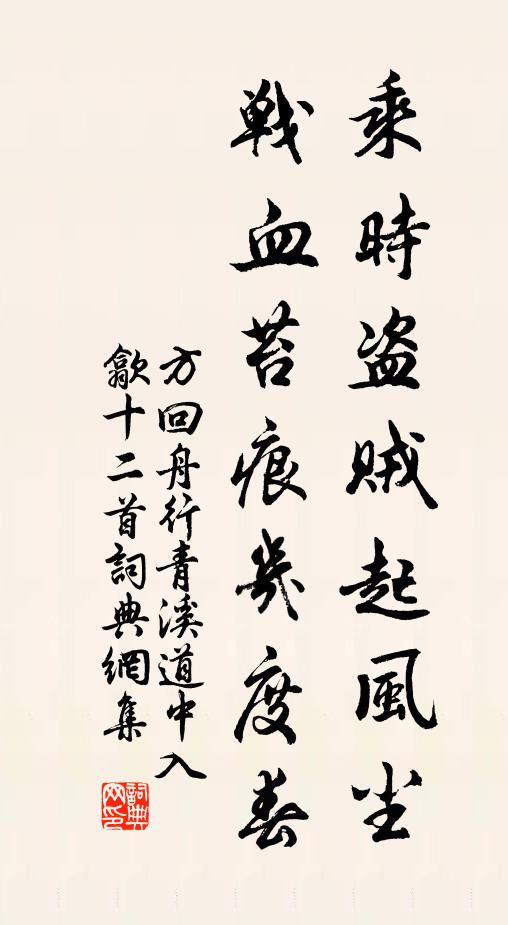 乘時盗賊起風尘
戦血苔痕幾度春
方回舟行青溪道中入
歙十二首詞典網集
詞典网印